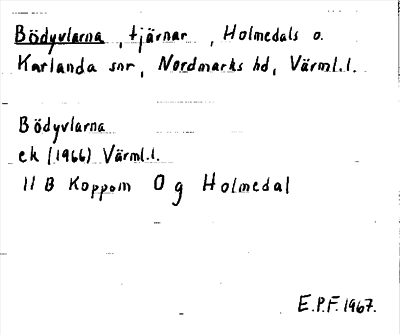 Bödyvlarna, tjärnar, Holmedals o.
Karlanda snr, Nordmarks hd, Värml.l.
Bödyvlarna
ek (1966) Värml.l.
11 B Koppom 0 g Holmedal
E.P.F. 1967.